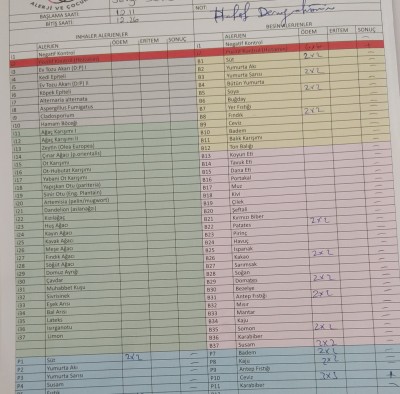 ALERJİ VE ÇOCUK
BAŞLAMA SAATİ 12.11
BİTİŞ SAATİ 12.26
NOT:
İNHALER ALERJENLER
ALERJEN ÖDEM ERİTEM SONUÇ
Negatif Kontrol
Ev Tozu Akarı (D.P.) I
Ev Tozu Akarı (D.F) II
Kedi Epiteli
Köpek Epiteli
Alternaria alternata
Aspergillus Fumigatus
Cladosporium
I10 Hamam Böceği
I11 Ağaç Karışımı I
I12 Ağaç Karışımı II
I13 Zeytin (Olea Europea)
I14 Çınar Ağacı (p.orientalis)
I15 Ot Karışımı
I16 Ot-Hububat Karışımı
I17 Yabani Ot Karışımı
I18 Yapışkan Otu (pariteria)
I19 Sinir Otu (Eng. Plantain)
I20 Artemisia (pelin/mugwort)
I21 Dandelion (aslanağzı)
I22 Kızılağaç
I23 Huş Ağacı
I24 Kayın Ağacı
I25 Kavak Ağacı
I26 Meşe Ağacı
I27 Fındık Ağacı
I28 Söğüt Ağacı
I29 Domuz Ayrığı
I30 Çavdar
I31 Muhabbet Kuşu
I32 Sivrisinek
I33 Eşek Arısı
I34 Bal Arısı
I35 Lateks
I36 Isırganotu
I37 Limon
P1 Süt 2x2 —
P2 Yumurta Akı —
P3 Yumurta Sarısı —
P4 Susam —
BESİN ALERJENLER
ALERJEN ÖDEM ERİTEM SONUÇ
I1 Negatif Kontrol
B1 Süt 2x2 —
B2 Yumurta Akı —
B3 Yumurta Sarısı 2x2 —
B4 Bütün Yumurta —
B5 Soya 2x2 —
B6 Buğday —
B7 Yer Fıstığı —
B8 Fındık 2x2 —
B9 Ceviz —
B10 Badem —
B11 Balık Karışımı —
B12 Ton Balığı —
B13 Koyun Eti —
B14 Tavuk Eti —
B15 Dana Eti —
B16 Portakal —
B17 Muz —
B18 Kivi —
B19 Çilek —
B20 Şeftali —
B21 Kırmızı Biber 2x2 —
B22 Patates —
B23 Pirinç —
B24 Havuç —
B25 Ispanak —
B26 Kakao 2x2 —
B27 Sarımsak —
B28 Soğan —
B29 Domates 2x2 —
B30 Bezelye —
B31 Antep Fıstığı 2x2 —
B32 Mısır —
B33 Mantar —
B34 Kaju —
B35 Somon 2x2 —
B36 Karabiber —
B37 Susam 2x2 —
P7 Badem 2x2 —
P8 Kaju 2x2 —
P9 Antep Fıstığı —
P10 Ceviz 2x3
P11 Karabiber —